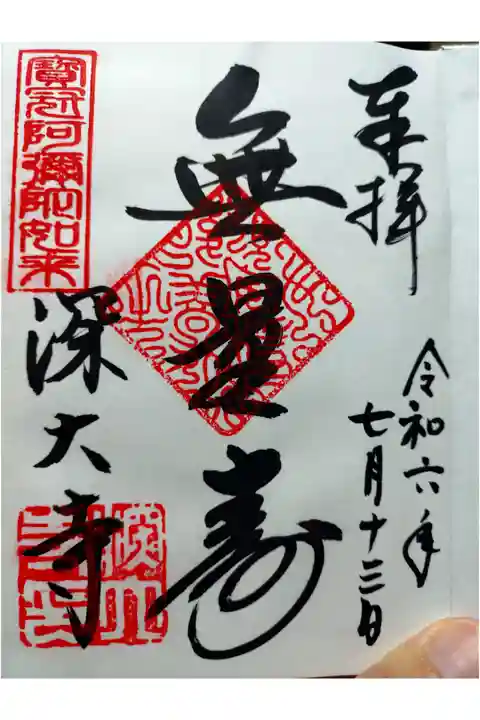 奉拝
令和六年
七月十三日
無量寿
寶冠阿彌陀如来
深大寺